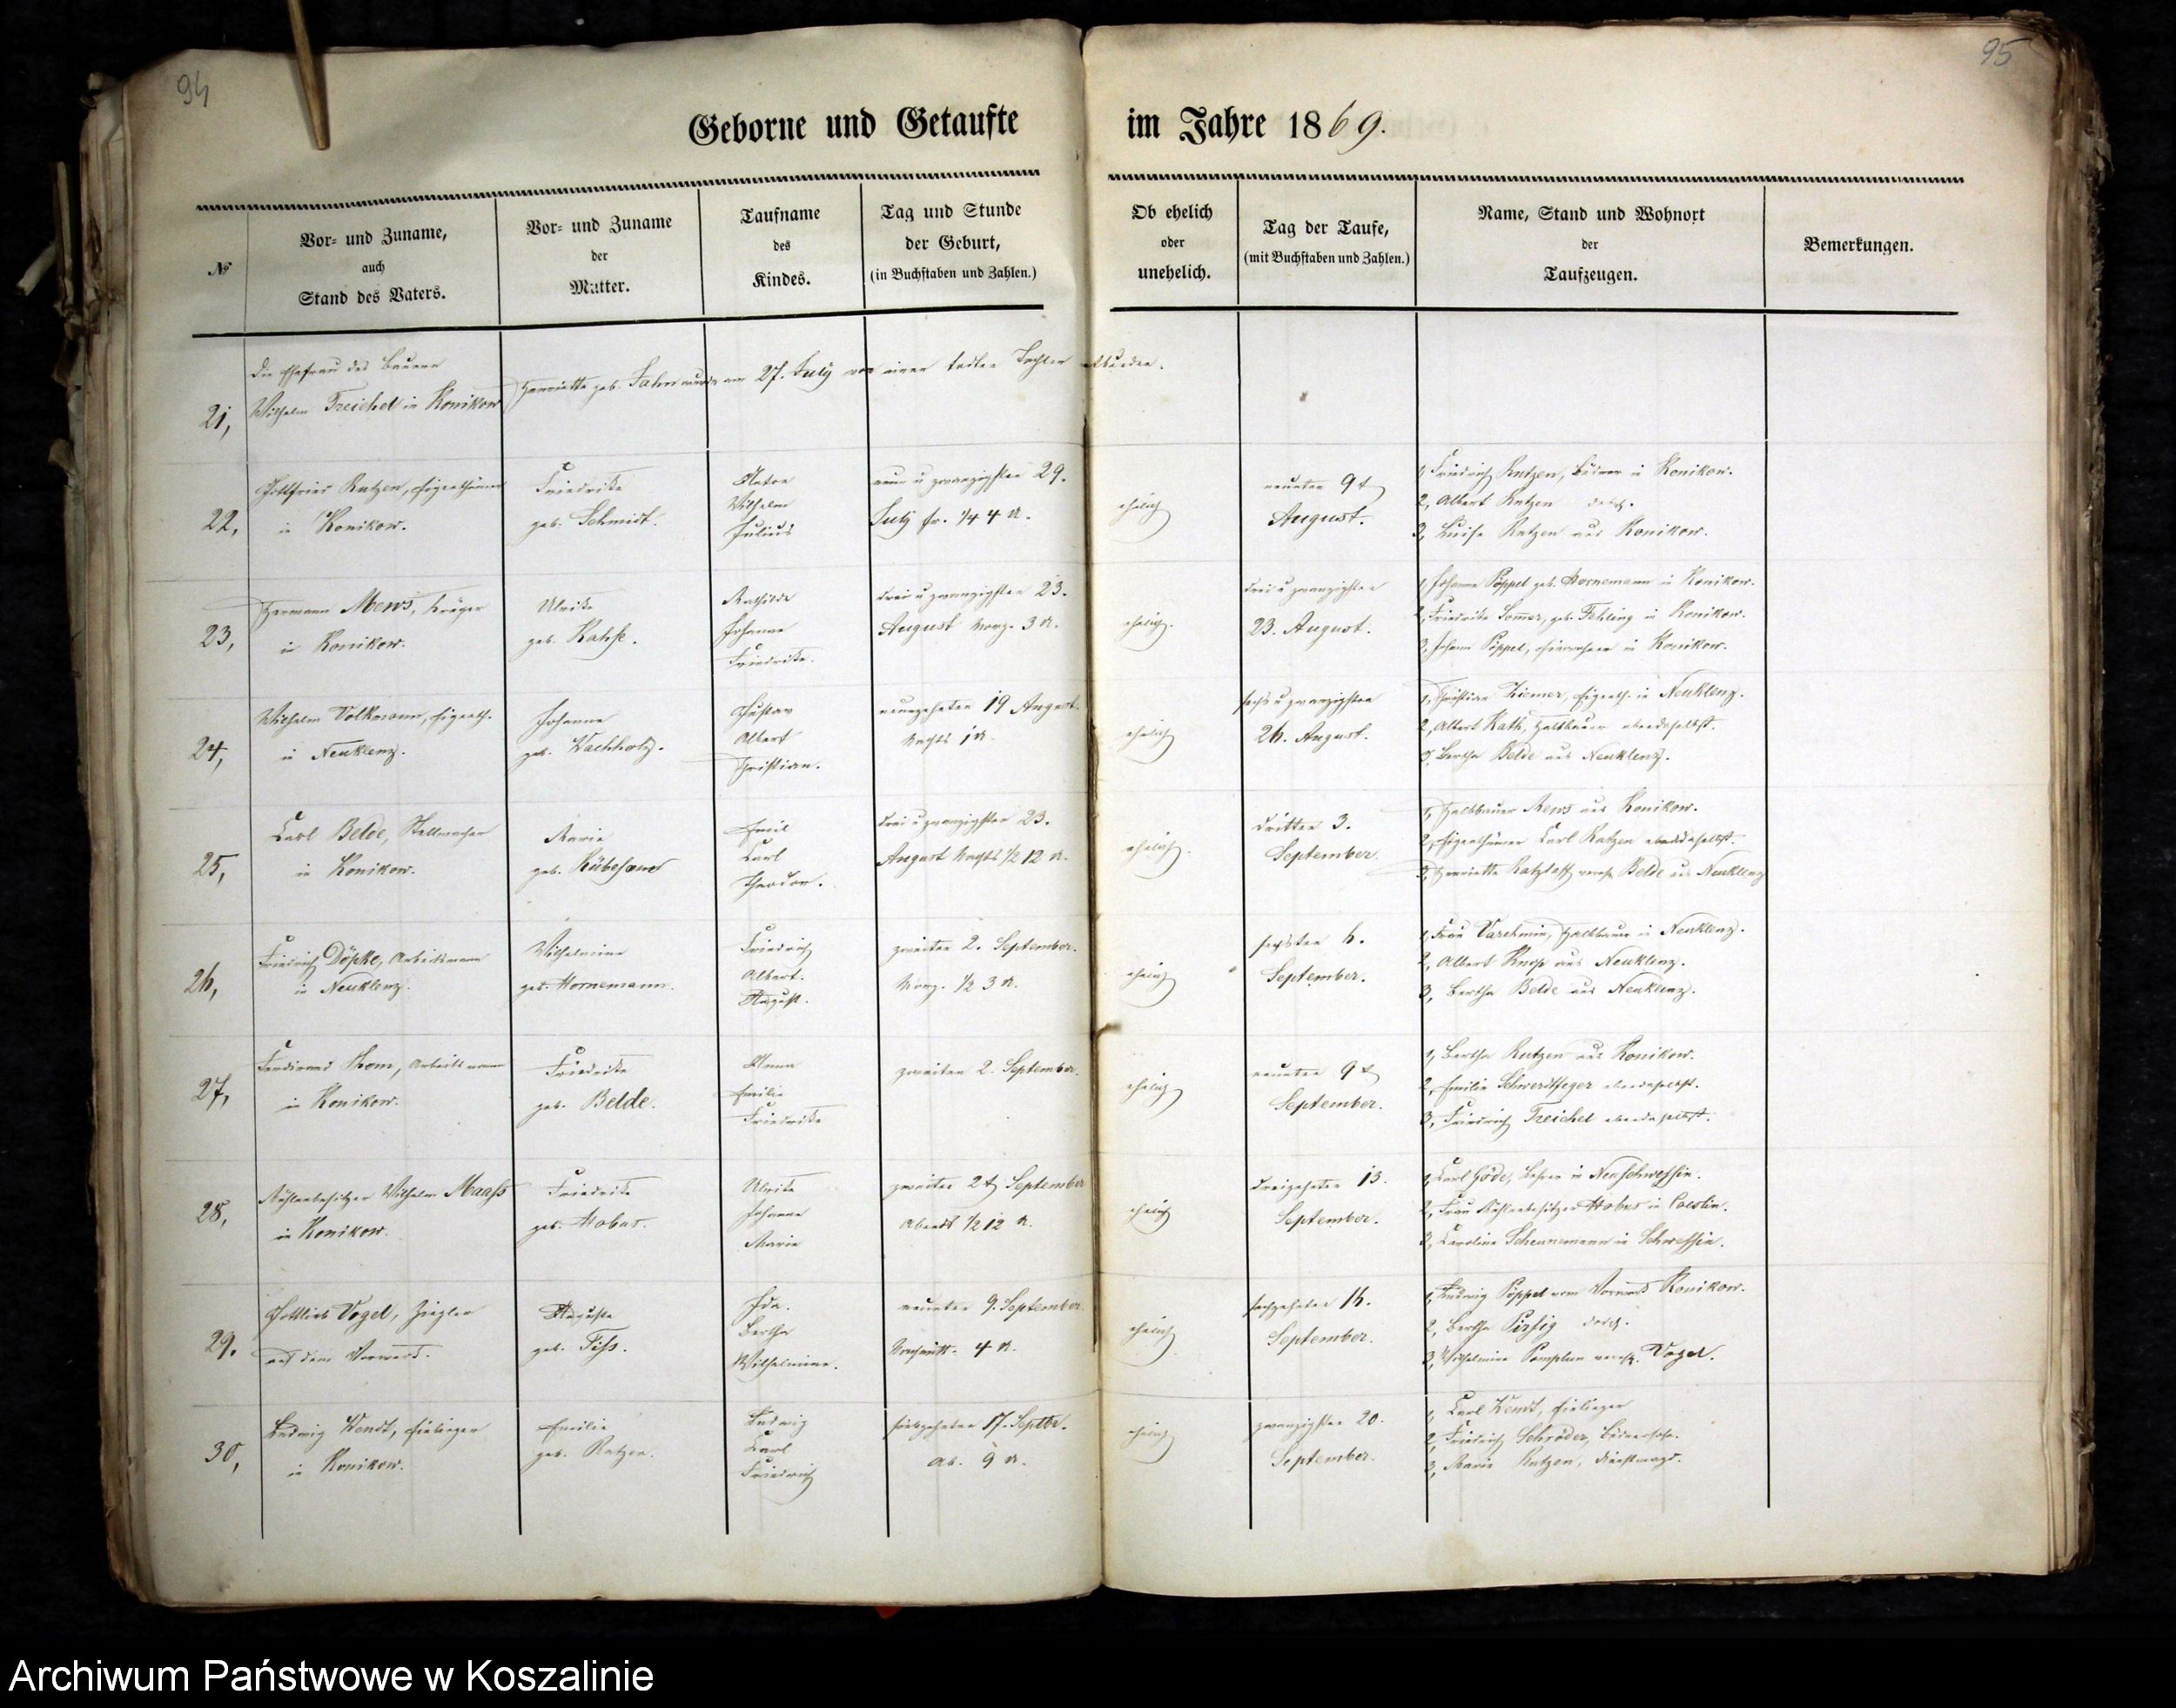 94
95
Geborne und Getaufte im Jahre 1869.
№
Vor- und Zuname,
auch
Stand des Vaters.
Vor- und Zuname
der
Mutter.
Taufname
des
Kindes.
Tag und Stunde
der Geburt,
(in Buchstaben und Zahlen.)
Ob ehelich
oder
unehelich.
Tag der Taufe,
(mit Buchstaben und Zahlen.)
Name, Stand und Wohnort
der
Taufzeugen.
Bemerkungen.
21,
Die Ehefrau des Bauern
Wilhelm Treichel in Konikow
Henriette geb. Jahn wurde am 27. July von einer todten Tochter entbunden.
22,
Gottfried Rutzen, Eigenthümer
in Konikow.
Friedrike
geb. Schmidt.
Anton
Wilhelm
Julius
neun u zwanzigsten 29.
July fr. 1/4 4 U.
ehelich
neunten 9t
August.
1, Friedrich Rutzen, Büdner in Konikow.
2, Albert Rutzen
3, Luise Rutzen aus Konikow.
23,
Hermann Mews, Krüger
in Konikow.
Ulrike
geb. Kahse.
Mathilde
Johanne
Friedrike.
drei u zwanzigsten 23.
August Morg. 3 U.
ehelich.
drei u zwanzigsten
23. August.
1, Johanne Pöppel geb. Hornemann in Konikow.
2, Friedrike Sommer, geb. Fehling in Konikow.
3, Johann Pöppel, Einwohner in Konikow.
24,
Wilhelm Volkmann, Eigenth.
in Neuklenz.
Johanne
geb. Wachholz.
Gustav
Albert
Christian.
neunzehnten 19 August.
Nachts 1 U.
ehelich
sechs u zwanzigsten
26. August.
1, Christian Ziemer, Eigenth. in Neuklenz.
2, Albert Rath, Halbbauer ebendaselbst.
3, Bertha Belde aus Neuklenz.
25,
Carl Belde, Stellmacher
in Konikow.
Marie
geb. Rübesam
Emil
Carl
Theodor.
drei u zwanzigsten 23.
August Nachts 1/2 12 U.
ehelich.
dritten 3.
September.
1, Halbbauer Mews aus Konikow.
2, Eigenthümer Carl Rutzen ebendaselbst.
3, Henriette Ratzlaff verehl. Belde aus Neuklenz
26,
Friedrich Döpke, Arbeitsmann
in Neuklenz.
Wilhelmine
geb. Hornemann.
Friedrich
Albert.
August.
zweiten 2. September.
Morg. 1/2 3 U.
ehelich
sechsten 6.
September.
1, Frau Varchmin, Halbbauer in Neuklenz.
2, Albert Knop aus Neuklenz.
3, Bertha Belde aus Neuklenz.
27,
Ferdinand Thom, Arbeitsmann
in Konikow.
Friedrike
geb. Belde.
Anna
Emilie
Friedrike
zweiten 2. September.
ehelich
neunten 9t
September.
1, Bertha Rutzen aus Konikow.
2, Emilie Schwerdtfeger ebendaselbst.
3, Friedrich Treichel ebendaselbst.
28,
Mühlenbesitzer Wilhelm Maass
in Konikow.
Friedrike
geb. Mobus.
Ulrike
Johanne
Marie
zweiten 2t September
Abends 1/2 12 U.
ehelich
dreizehnten 13.
September.
1, Carl Göde, Lehrer in Neuschwessin.
2, Frau Mühlenbesitzer Mobus in Coeslin.
3, Caroline Scheunemann in Schwessin.
29.
Gottlieb Vogel, Ziegler
auf dem Vorwerk.
Auguste
geb. Fiss.
Ida.
Bertha
Wilhelmine.
neunten 9. September.
Nachmitt. 4 U.
ehelich
sechzehnten 16.
September.
1, Ludwig Pöppel vom Vorwerk Konikow.
2, Bertha Pirsig
3, Wilhelmine Pomplun verehl. Vogel.
30,
Ludwig Wendt, Einlieger
in Konikow.
Emilie
geb. Rutzen.
Ludwig
Carl
Friedrich
siebzehnten 17. Septbr.
Ab. 9 U.
ehelich
zwanzigsten 20.
September.
1, Carl Wendt, Einlieger
2, Friedrich Schröder, Büdnersohn.
3, Marie Rutzen, Dienstmagd.
Archiwum Państwowe w Koszalinie